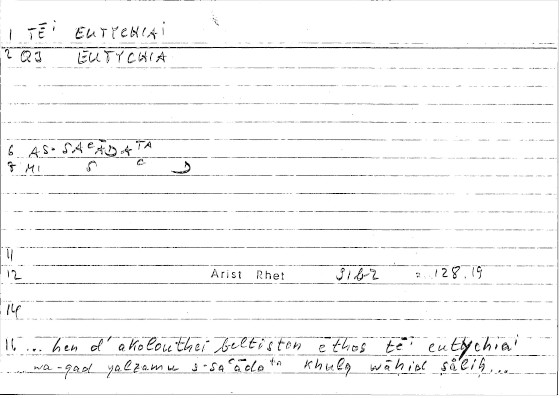 1 TĒⁱ EUTYCHIAI
2 QJ EUTYCHIA
6 AS-SAᶜĀDAᵀᴬ
8 HI S ᶜ D
11
12 Arist Rhet 91b2 = 128.19
14
15 ... hen d' akolouthei beltiston ēthos tēⁱ eutychiaⁱ
wa-qad yalzamu s-saᶜādaᵗᵃ khulq wāhid sālih...